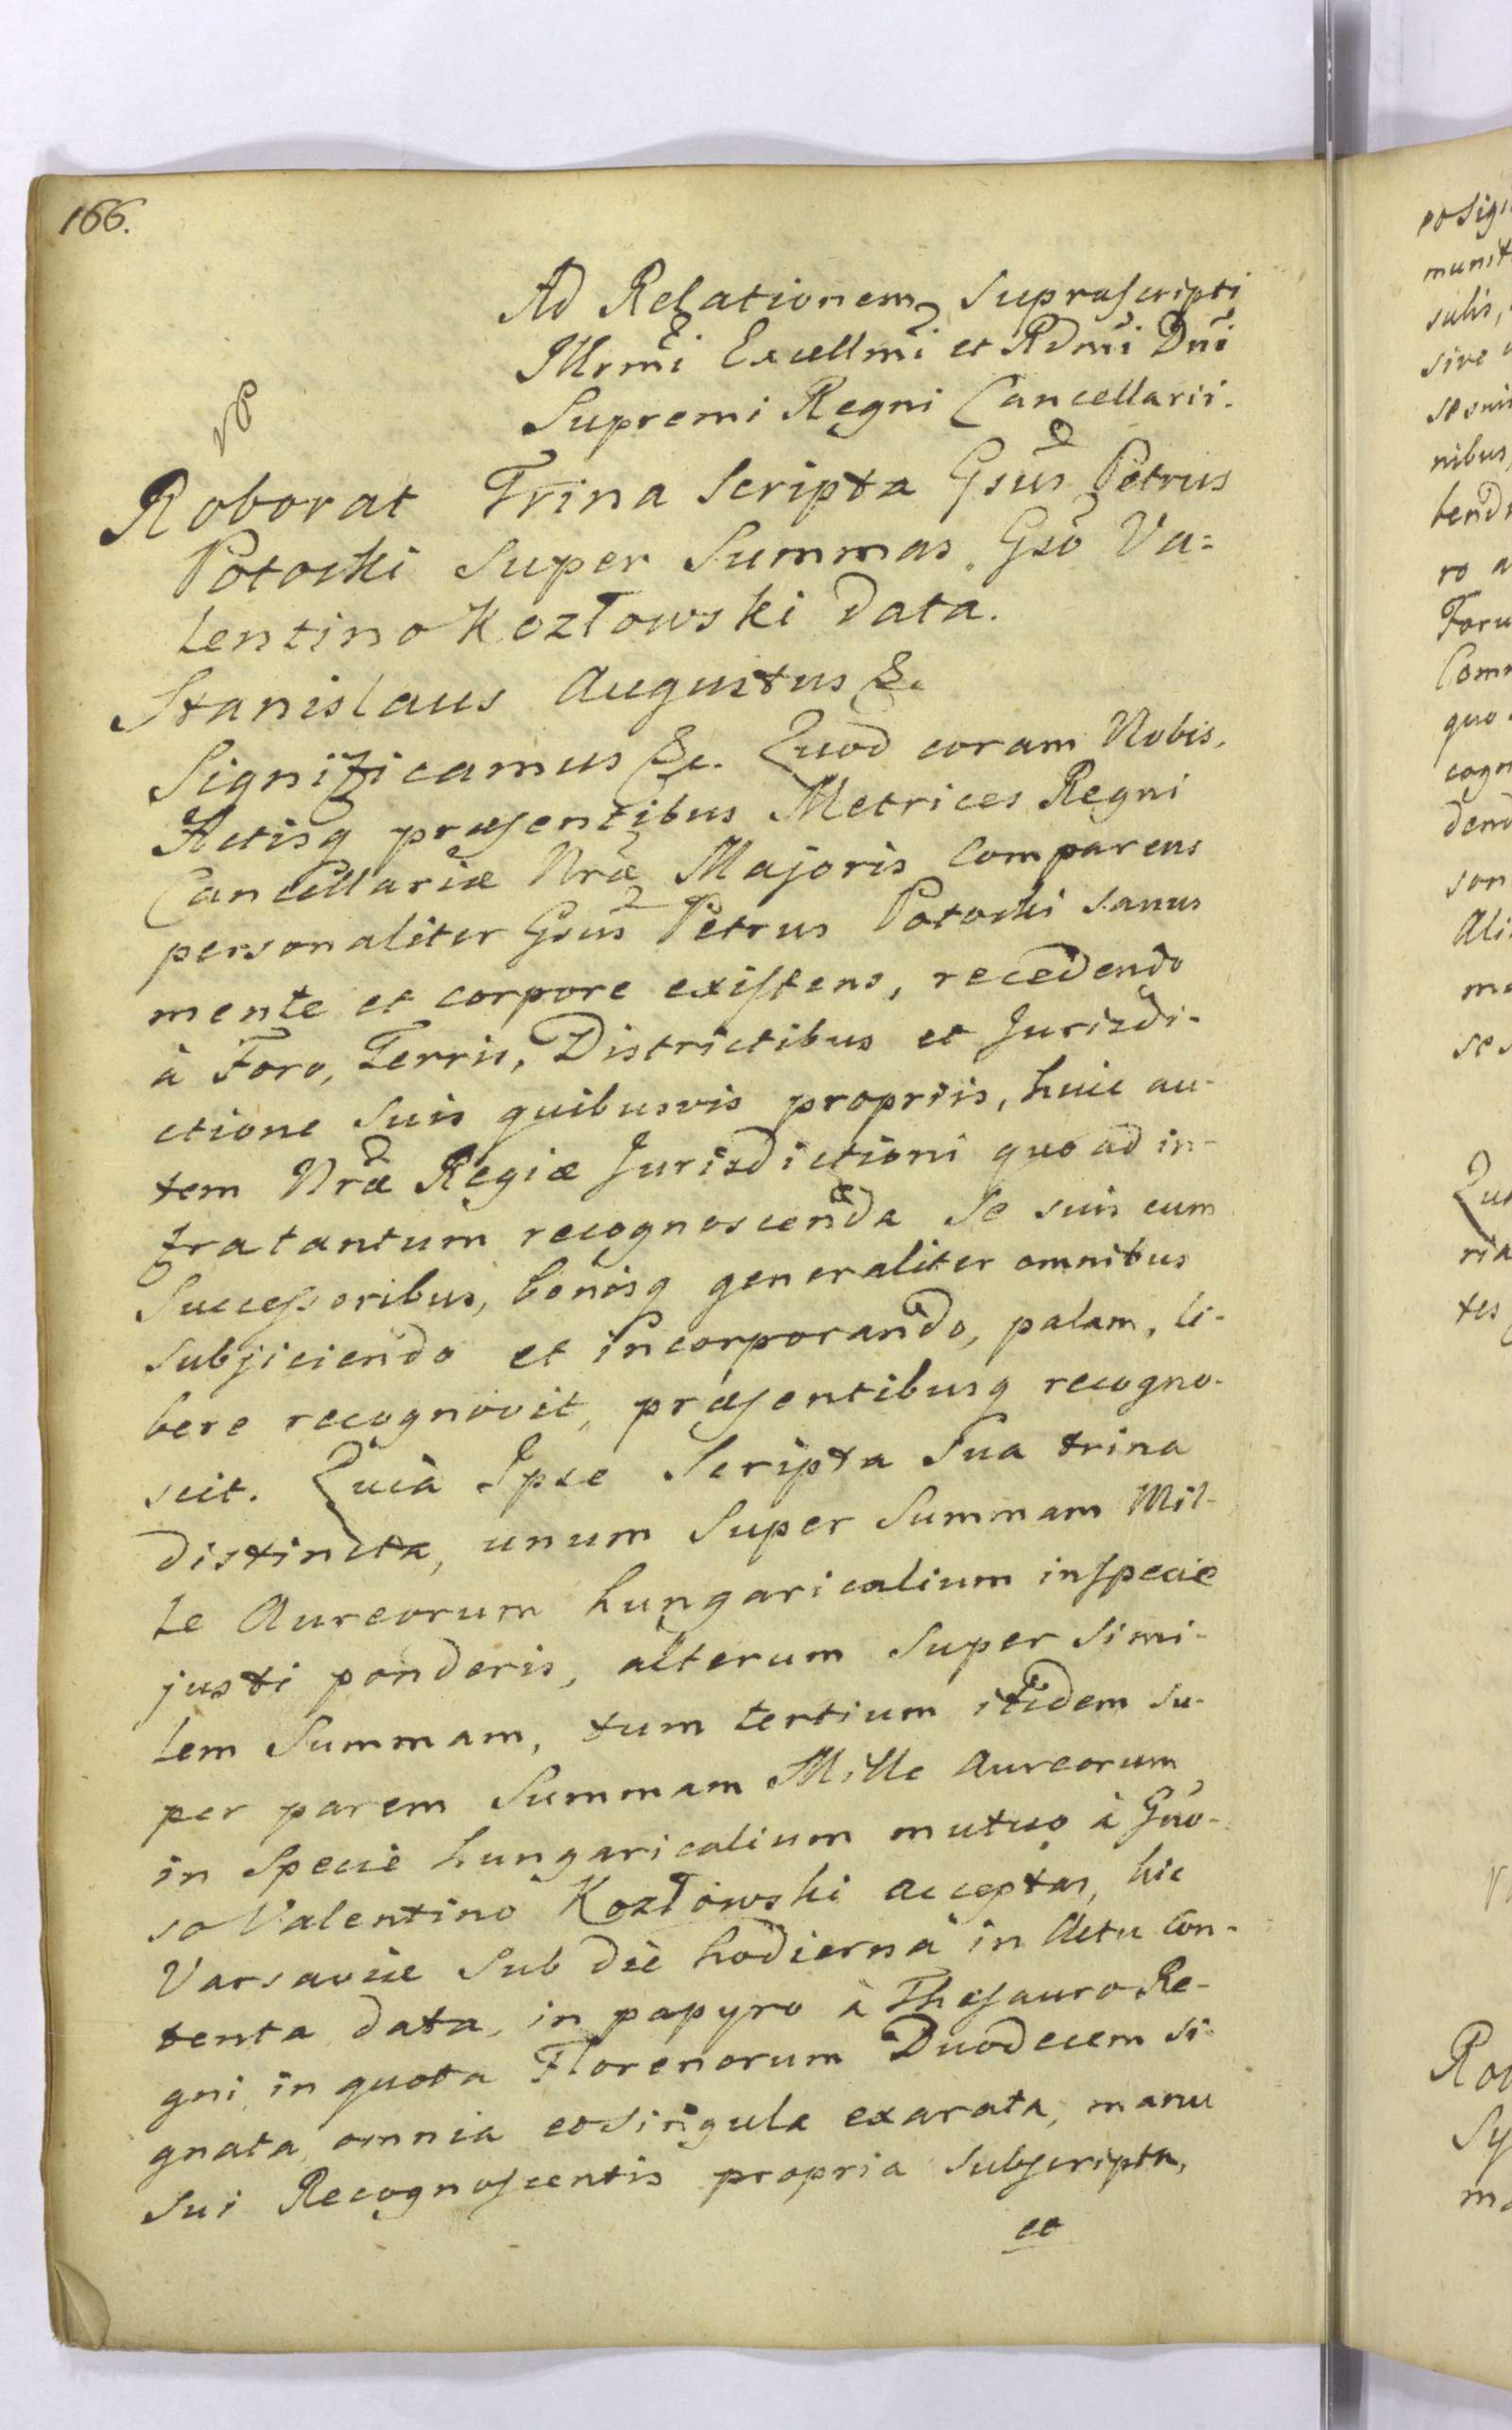 166.
Ad Relationem Suprascripti
Illrmi Excellmi et Rdmi Dni
Supremi Regni Cancellarii.
Roborat Trina Scripta Gsus Petrus
Potocki Super Summas Gso Va=
lentino Kozłowski data.
Stanislaus Augustus &c
Significamus &c. Quod coram Nobis,
Actisq præsentibus Metrices Regni
Cancellariæ Nræ Majoris Comparens
personaliter Gsus Petrus Potocki sanus
mente et corpore existens, recedendo
à Foro, Terris, Districtibus et Jurisdi-
ctione Suis quibusvis propriis, huic au-
tem Nræ Regiæ Jurisdictioni quo ad in-
fratantum recognoscenda Se suis cum
Successoribus, bonisq generaliter omnibus
Subjiciendo et incorporando, palam, li-
bere recognovit, præsentibusq recogno-
scit. Quià Ipse Scripta Sua trina
distincta, unum Super Summam Mil-
le Aureorum hungaricalium inspecie
justi ponderis, alterum Super Simi-
lem Summam, tum tertium itidem Su-
per parem Summam Mille Aureorum
in Specie hungaricalium mutuo à Gno-
so Valentino Kozłowski acceptas, hic
Varsaviæ Sub die hodierna in Actu Con-
tenta data, in papyro à Thesauro Re-
gni in quota Florenorum Duodecem si-
gnata, omnia eosingula exarata, manu
Sui Recognoscentis propria subscripta,
et
posig
munit
sulis,
sive
nibus
bend
ro a
Foru
Comm
quo
cogn
dend
son
Ali
ma
se s
Qu
ria
tes
Rob
Sy
ma